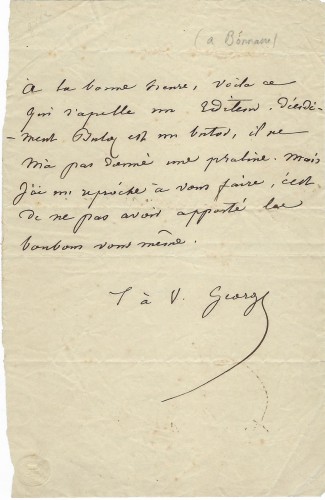 (a Bonnaire)
A la bonne heure, voila ce
qui s'apelle un Editeur. décidé-
-ment Buloz est un butor, il ne
m'a pas donné une praline. Mais
j'ai un reproche à vous faire, c'est
de ne pas avoir apporté les
bonbons vous même.
T à V. George